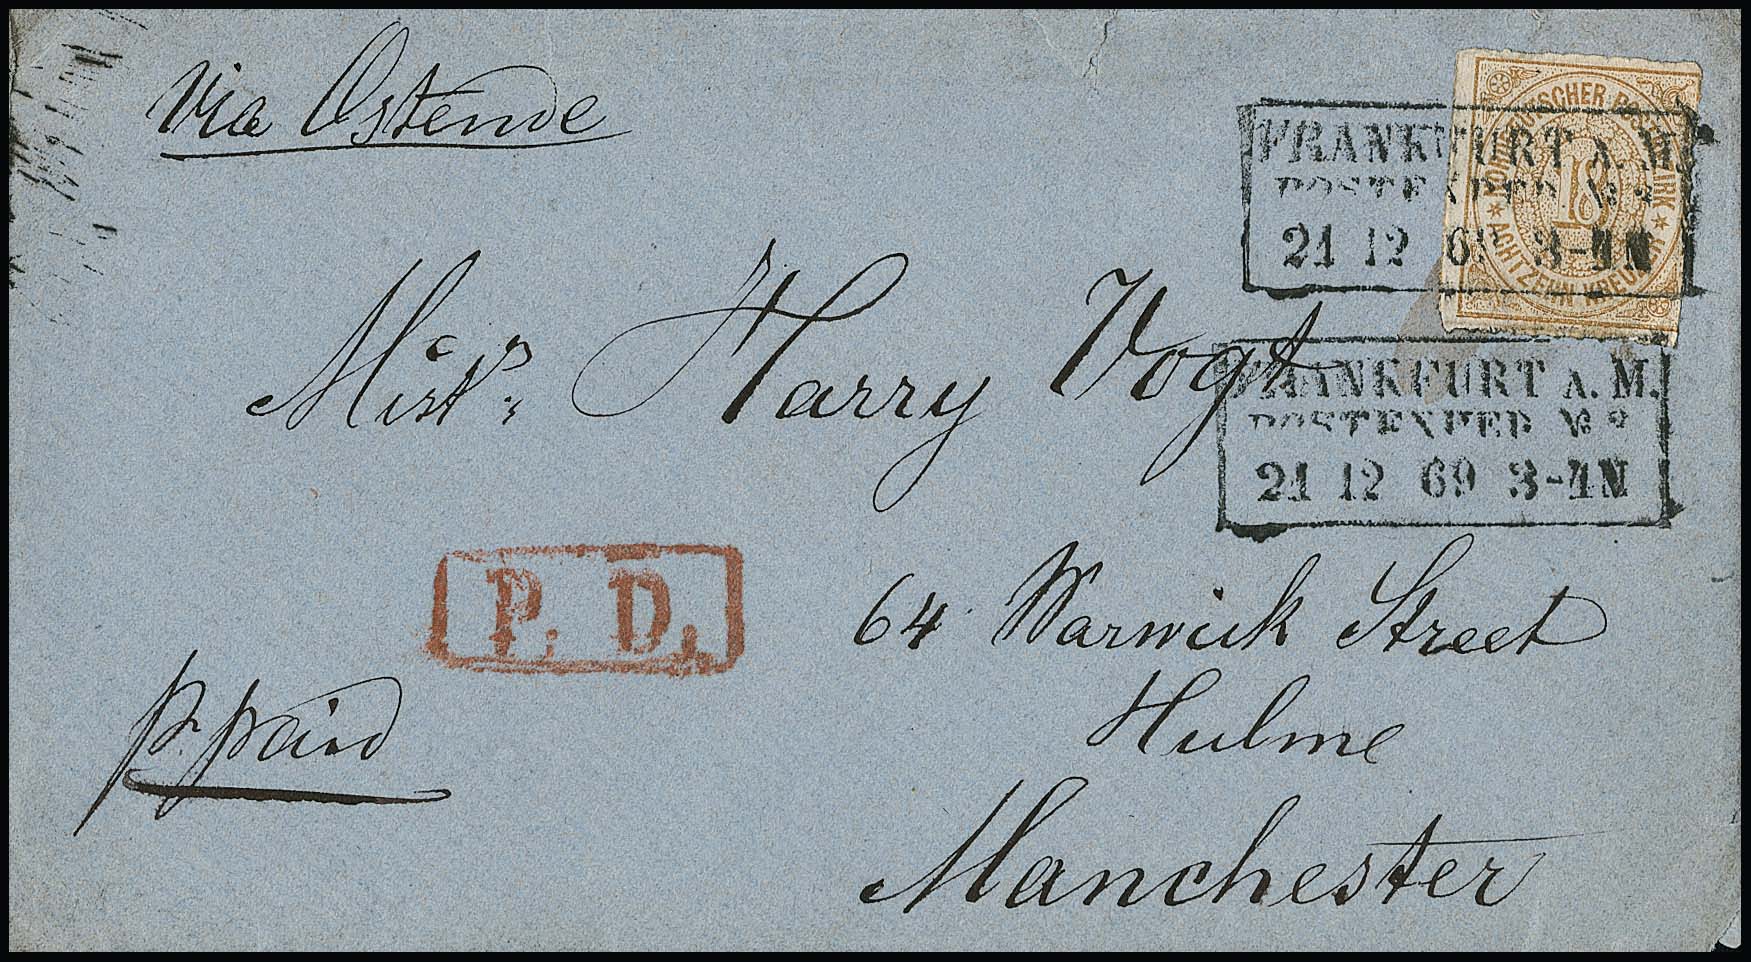 Via Ostende
NORDDEUTSCHER POSTBEZIRK
18
ACHTZEHN KREUZER
FRANKFURT A. M.
POSTEXPED. No 2
21 12 69 3-4 N
Mistr. Harry Vogt
FRANKFURT A. M.
POSTEXPED. No 2
21 12 69 3-4 N
P. D.
64 Warwick Street
Hulme
Manchester
pr. paid